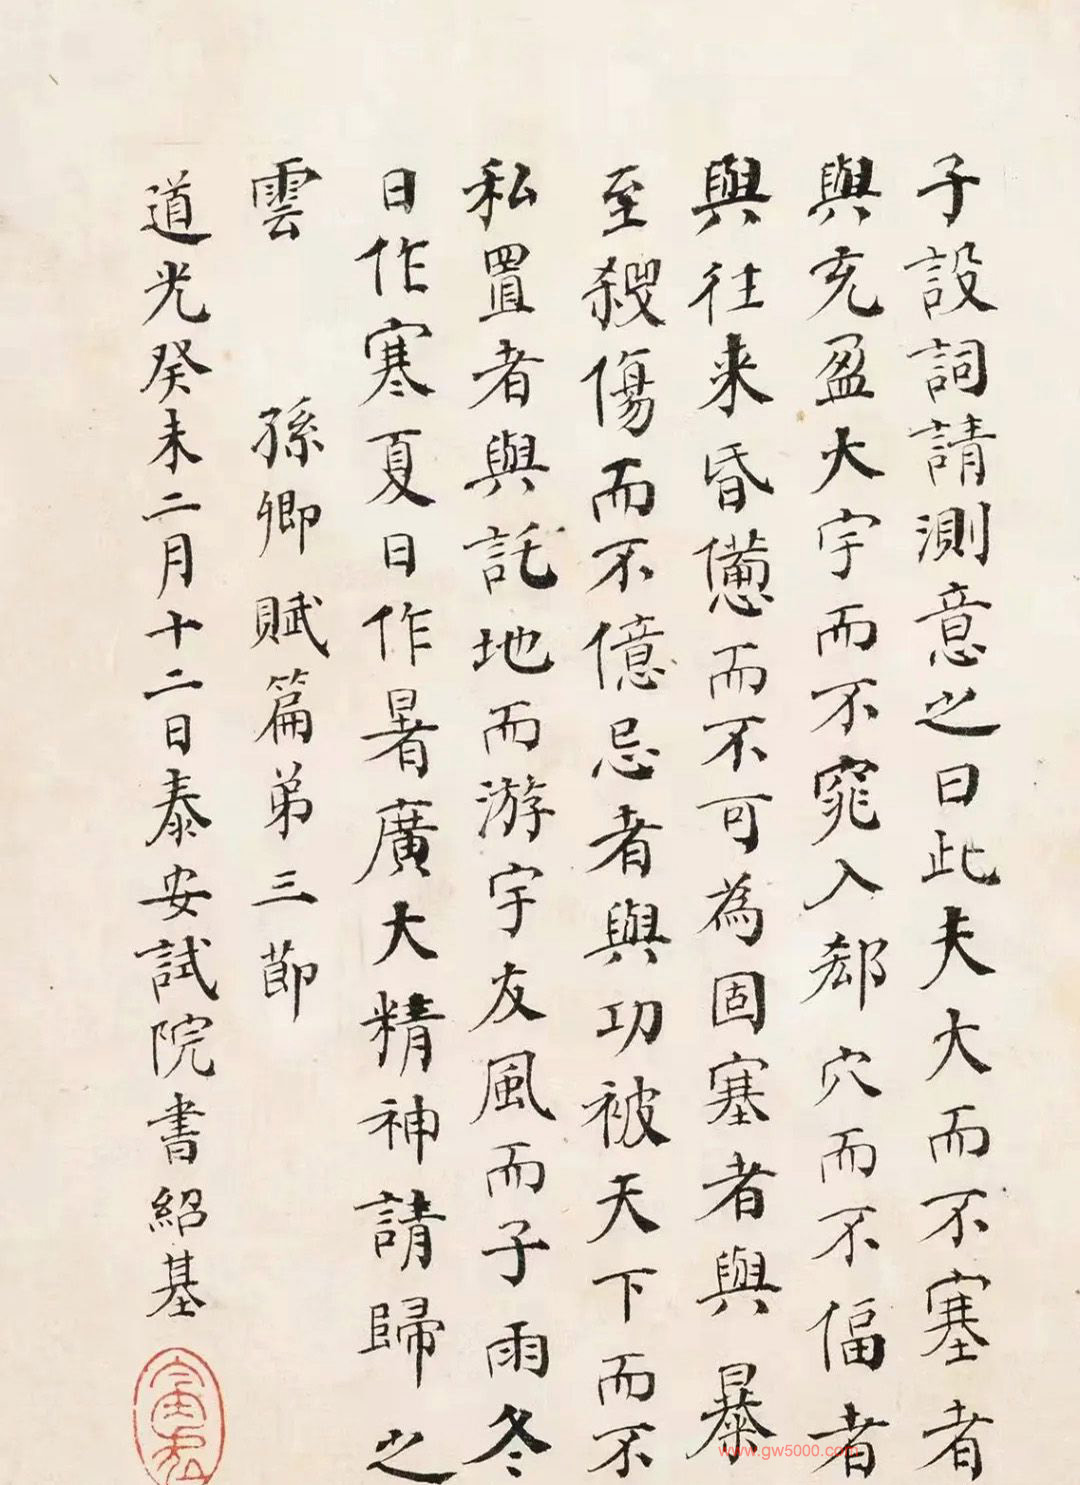 子設詞請測意之曰此夫大而不塞者
與充盈大宇而不窕入郄穴而不偪者
與往来昏憊而不可為固塞者與暴
至殺傷而不億忌者與功被天下而不
私置者與託地而游宇友風而子雨冬
日作寒夏日作暑廣大精神請歸之
雲 孫卿賦篇弟三節
道光癸未二月十二日泰安試院書紹基
www.gw5000.com